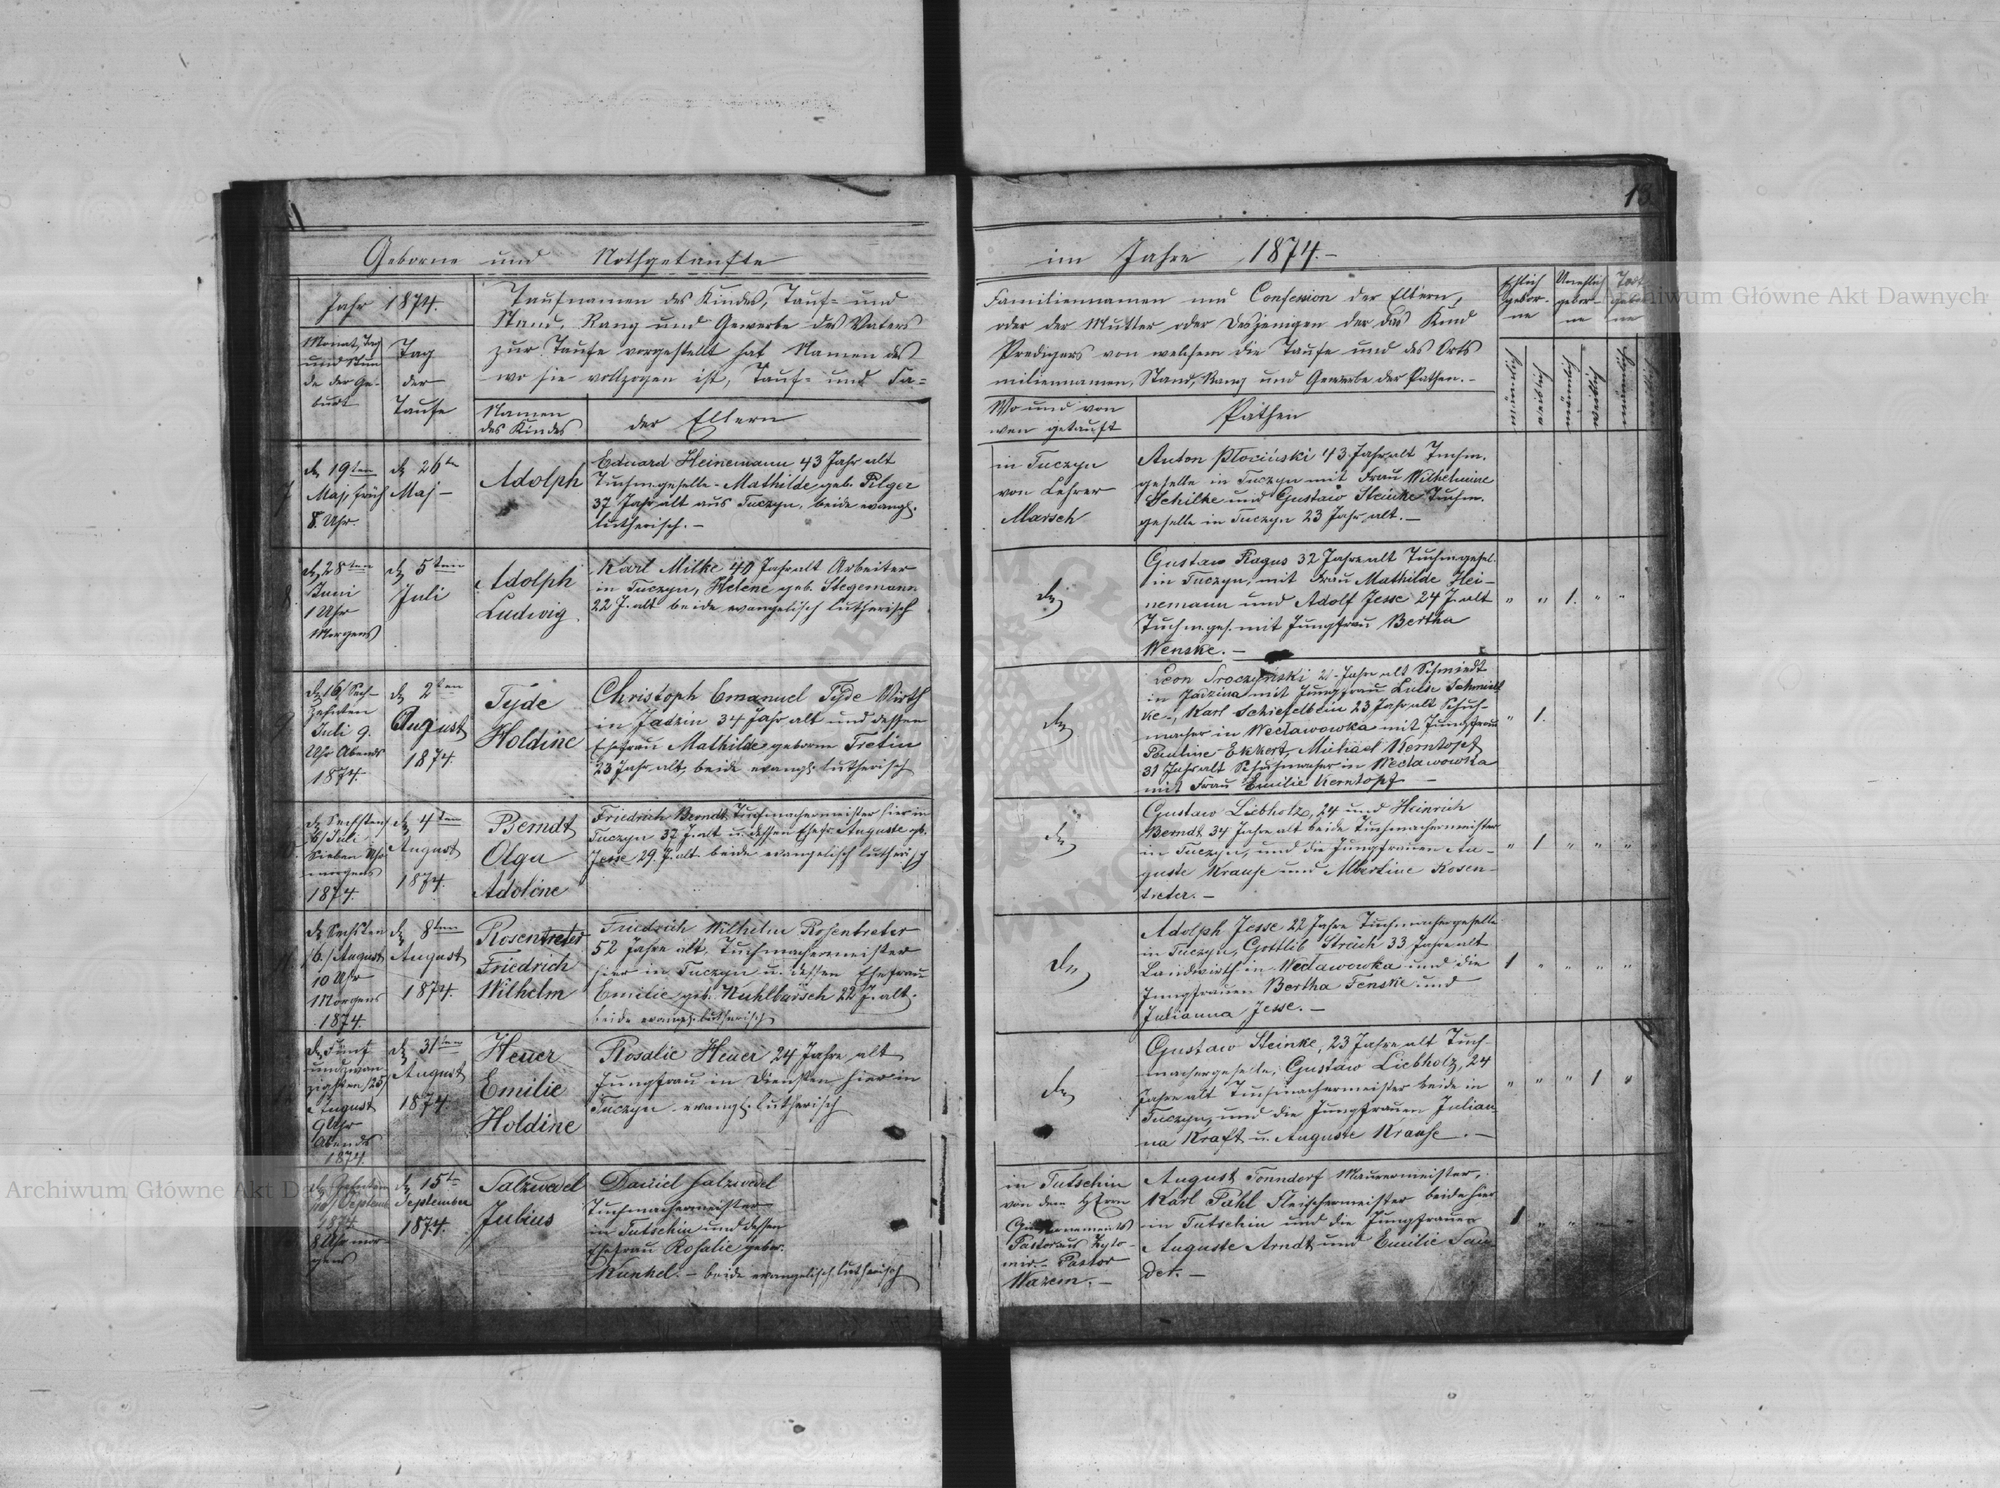 18.
Geborne und Nothgetaufte
im Jahre 1874.-
Jahr 1874.
Monat, Tag
und Stun
de der Ge-
burt
Tag
der
Taufe
Taufnamen des Kindes, Tauf- und
Stand, Rang und Gewerbe des Vaters
zur Taufe vorgestellt hat Namen des
wo sie vollzogen ist, Tauf- und Fa-
Namen
des Kindes
der Eltern
Familiennamen und Confession der Eltern,
oder der Mutter oder Desjenigen der das Kind
Predigers von welchem die Taufe und des Orts
miliennamen, Stand, Rang und Gewerbe der Pathen.-
Wo und von
wem getauft
Pathen
Ehlich
gebor-
ne
Unehlich
gebor-
ne
männlich
weiblich
männlich
weiblich
männlich
7
19ten
Maj, früh
8. Uhr
26te
Maj-
Adolph
Eduard Heinemann 43 Jahr alt
Tuchm.geselle - Mathilde geb. Pilger
37 Jahr alt aus Tuczyn, beide evangl.
lutherisch.-
in Tuczyn
von Lehrer
Marsch
Anton Płociński 43 Jahr alt Tuchm.
geselle in Tuczyn mit Frau Wilhelmine
Schilke und Gustaw Steinke Tuchm.
geselle in Tuczyn 23 Jahr alt.-
8.
28ten
Juni
1 Uhr
Morgens
5ten
Juli
Adolph
Ludwig.
Karl Milke 40 Jahr alt Arbeiter
in Tuczyn, Helene geb. Stegemann
22 J. alt beide evangelisch lutherisch
Gustaw Ragus 32 Jahre alt Tuchm.gesel.
in Tuczyn, mit Frau Mathilde Hei-
nemann und Adolf Jesse 24 J. alt
Tuchm.ges. mit Jungfrau Bertha
Wenske.-
" " 1. " "
9
16 Sech-
zehnten
Juli 9.
Uhr Abends
1874.
2ten
August
1874
Tyde
Holdine
Christoph Emanuel Tyde Wirth
in Jadzin 34 Jahr alt und dessen
Ehefrau Mathilde geborne Tretin
23 Jahr alt, beide evangl. lutherisch
Leon Sroczyński Jahr alt Schmiedt
in mit Jungfrau Luise Schmidt
ke-, Karl Schiefelbein 23 Jahr alt Schuh-
macher in Wecławowka mit Jungfrau
Pauline Ekkert, Michael Kerntopf
31 Jahr alt Schuhmacher in Wecławowka
mit Frau Emilie Kerntopf -
" 1.
Sechsten
/6/ Juli
Sieben Uhr
morgens
1874.
4ten
August
1874.
Berndt
Olga
Adoline
Friedrich Berndt, Tuchmachermeister hier in
Tuczyn 37 J. alt u. dessen Ehefr. Auguste geb.
Jesse 29 J. alt beide evangelisch lutherisch
Gustaw Liebholz, 24 und Heinrich
Berndt 34 Jahre alt beide Tuchmachermeister
in Tuczyn, und die Jungfrauen Au-
guste Krause und Albertine Rosen-
treter.-
" 1 " " "
Sechsten
/6/ August
10 Uhr
Morgens
1874.
8ten
August
1874.
Rosentreter
Friedrich
Wilhelm
Friedrich Wilhelm Rosentreter
52 Jahre alt, Tuchmachermeister
hier in Tuczyn u. dessen Ehefrau
Emilie geb. Kuhlbarsch 22 J. alt.
beide evangl. lutherisch
Adolph Jesse 22 Jahre Tuchmachergeselle
in Tuczyn, Gottlib Streich 33 Jahre alt
Landwirth in Wecławowka und die
Jungfrauen Bertha Fenske und
Julianna Jesse.-
1 " " " "
Fünf
undzwan
zigsten /25/
August
9 Uhr
Abends
1874.
31ten
August
1874
Heuer
Emilie
Holdine
Rosalie Heuer 24 Jahre alt
Jungfrau in Diensten hier in
Tuczyn. evangl. lutherisch
Gustaw Steinke, 23 Jahre alt Tuch-
machergeselle, Gustaw Liebholz, 24
Jahre alt Tuchmachermeister beide in
Tuczyn, und die Jungfrauen Julian-
na Kraft u. Auguste Krause.-
" " " 1 "
1874.
8 Uhr mor-
gens
15te
September
1874.
Salzwedel
Julius
Daniel Salzwedel
Tuchmachermeister
in Tutschin und dessen
Ehefrau Rosalie gebor.
Kunkel.- beide evangelisch lutherisch
in Tutschin
von dem Herrn
Gouvernements
Pastor aus Zyto-
mir.- Pastor
Wasem.-
August Tonndorf Maurermeister,
Karl Pahl Fleischermeister beide hier
in Tutschin und die Jungfrauen
Auguste Arndt und Emilie
1 " " " "
Archiwum Główne Akt Dawnych
Archiwum Główne Akt Dawnych